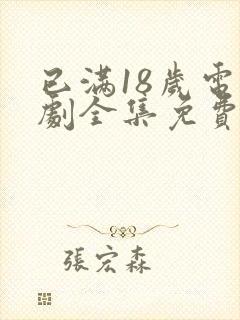 已滿18歲電
劇全集免費
張宏森